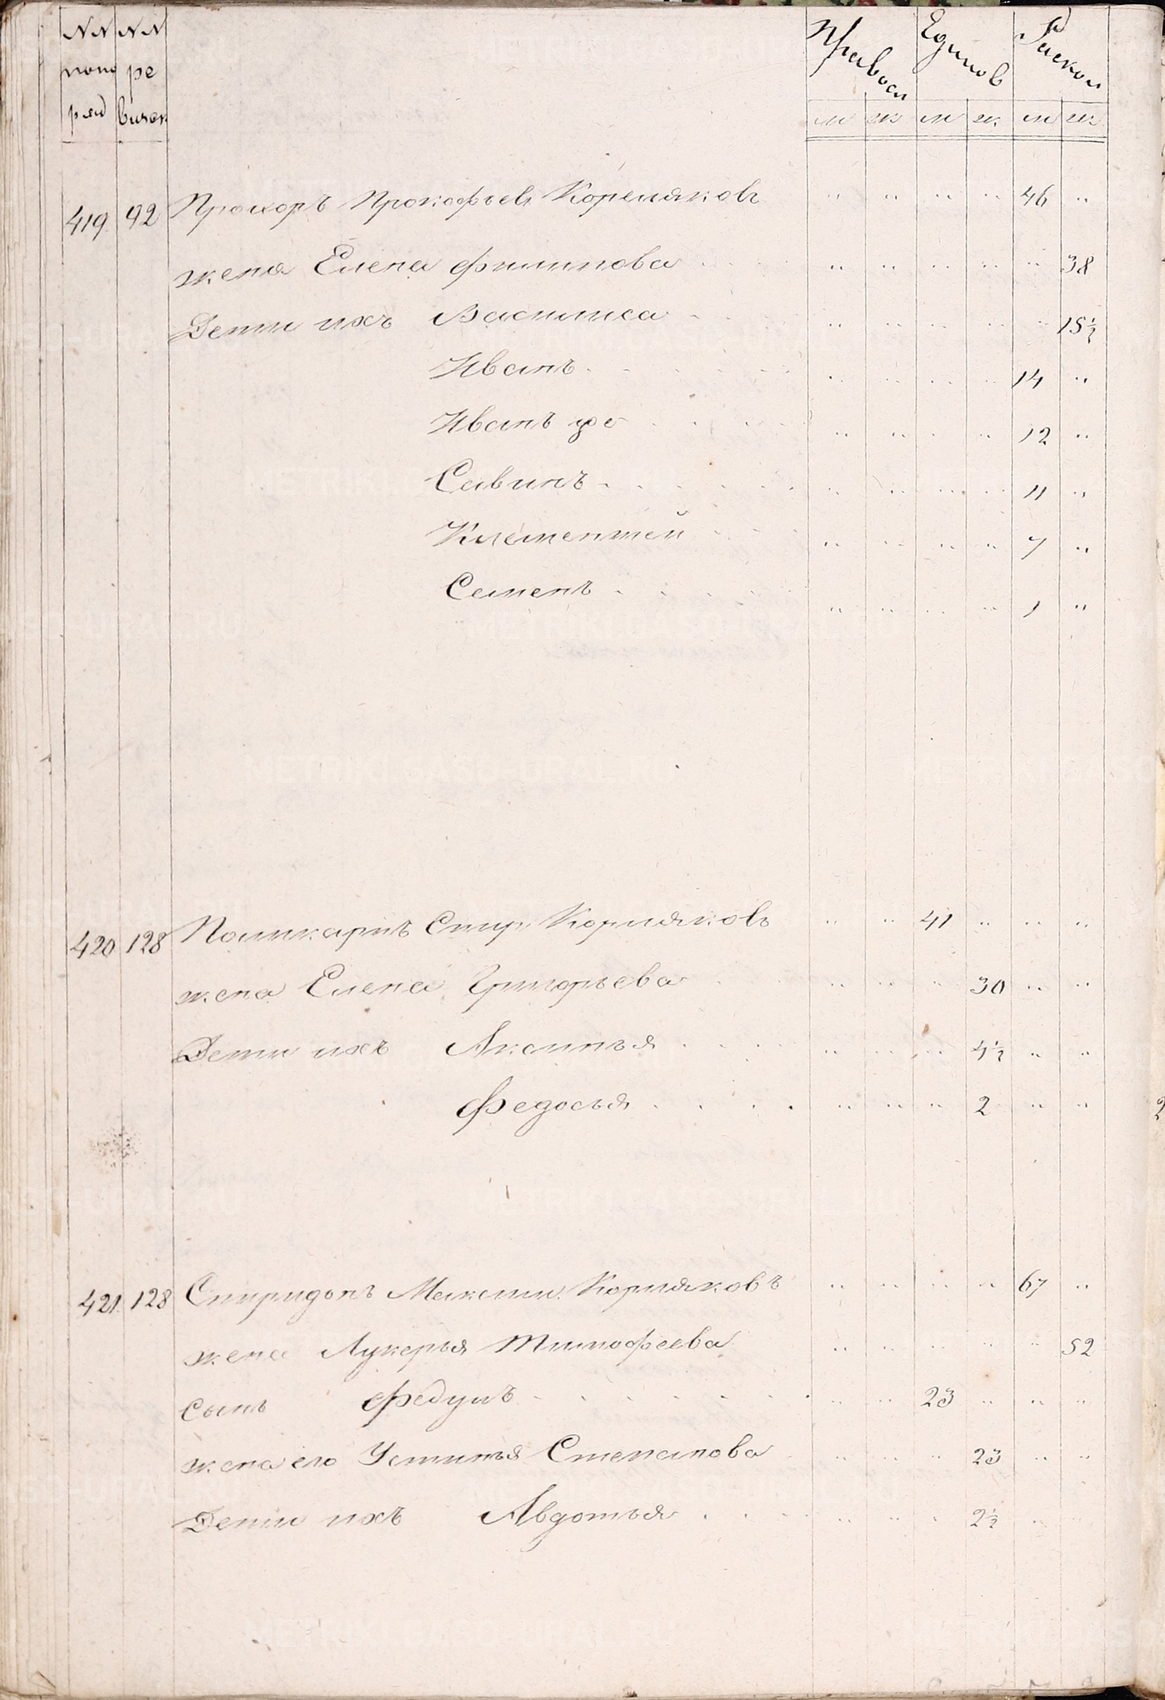 NN NN Правосл Единов Раскол
попо ре
ряд визск м ж м ж м ж
419 92 Прохоръ Прокофьевъ Кореляковъ 46
жена Елена Филипова 38
Дети ихъ Василиса 15½
Иванъ 14
Иванъ же 12
Савинъ 11
Клементей 7
Семенъ 1
420 128 Поликарпъ Спир. Корляковъ 41
жена Елена Григорьева 30
Дети ихъ Аксинья 4½
Федосья 2
421 128 Спиридонъ Максим. Корляковъ 67
жена Лукерья Тимофеева 52
сынъ Федулъ 23
жена его Устинья Степанова 23
Дети ихъ Авдотья 2½